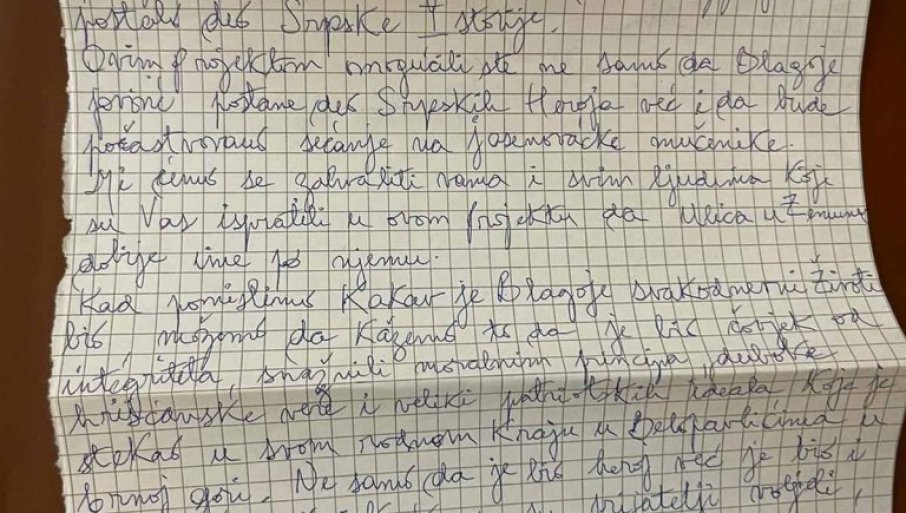 postala deo Srpske Istorije.
Ovim projektom omogućili ste ne samo da Blagoje
Jović postane deo Srpskih Heroja već i da bude
počastvovano sećanje na jasenovačke mučenike.
Mi ćemo se zahvaliti vama i svim ljudima koji
su Vas ispratili u ovom projektu da ulica u Zemunu
dobije ime po njemu.
Kad pomislimo Kakav je Blagoje svakodnevni život
bio, možemo da Kažemo to da je bio čovjek od
integriteta, snažnih moralnim principa, duboke
hrišćanske vere i veliki patriotskih ideala Koje je
stekao u svom rodnom Kraju u Bjelopavlićima u
Crnoj gori. Ne samo da je bio heroj već je bio i
prijatelji voljeli,